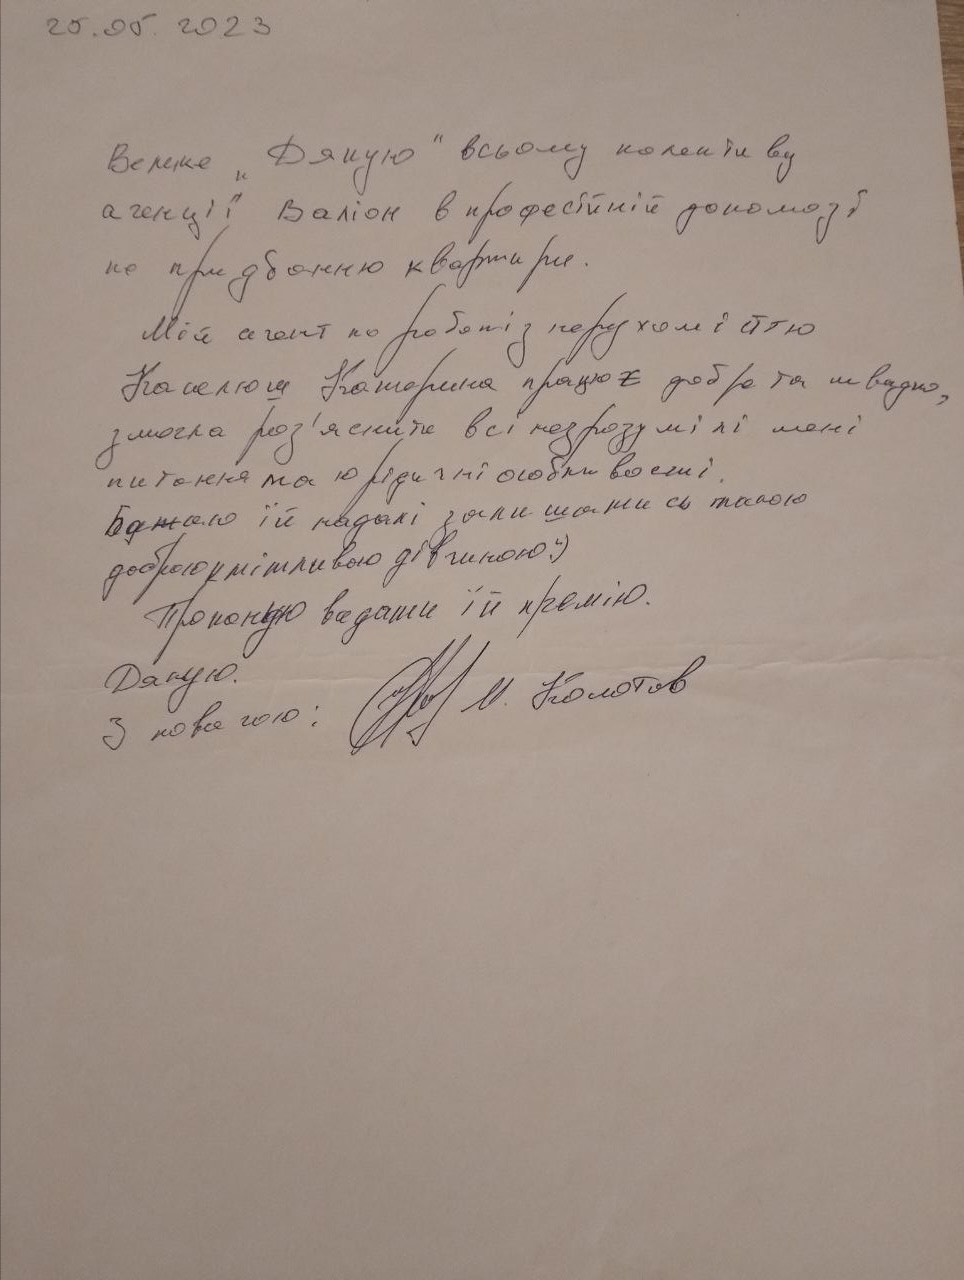 25.05.2023
Велике „Дякую" всьому колективу
агенції Валіон в професійній допомозі
по придбанню квартири.
Мій агент по роботі з нерухомістю
Катерина працює добре та швидко,
змогла роз'яснити всі незрозумілі мені
питання та юридичні особливості.
Бажаю їй надалі залишатись такою
доброю кмітливою дівчиною :)
Пропоную видати їй премію.
Дякую.
З повагою: М. Колотов